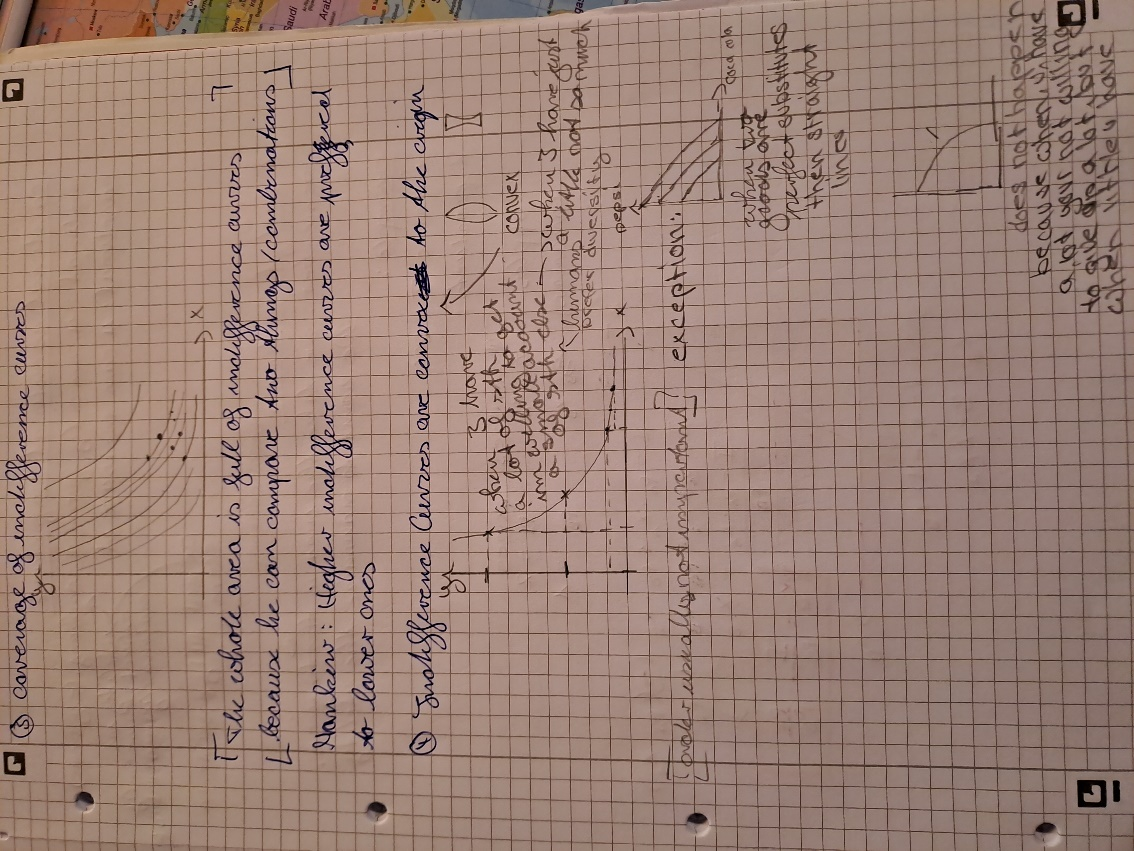 ③ coverage of indifference curves
y
x
The whole area is full of indifference curves
because he can compare two things (combinations)
Mankiw: Higher indifference curves are preffered
to lower ones
④ Indifference Curves are convex to the origin
y
x
when I have
a lot of sth
im willing to get
a small account
of sth else → when I have just
a little not so much
humans
prefer diversity
convex
[order usually not important]
exception:
pepsi
coca cola
when two
goods are
perfect substitutes
then straight
lines
does not happen
because when u have
a lot your not willing
to give up a lot but
when u little u have